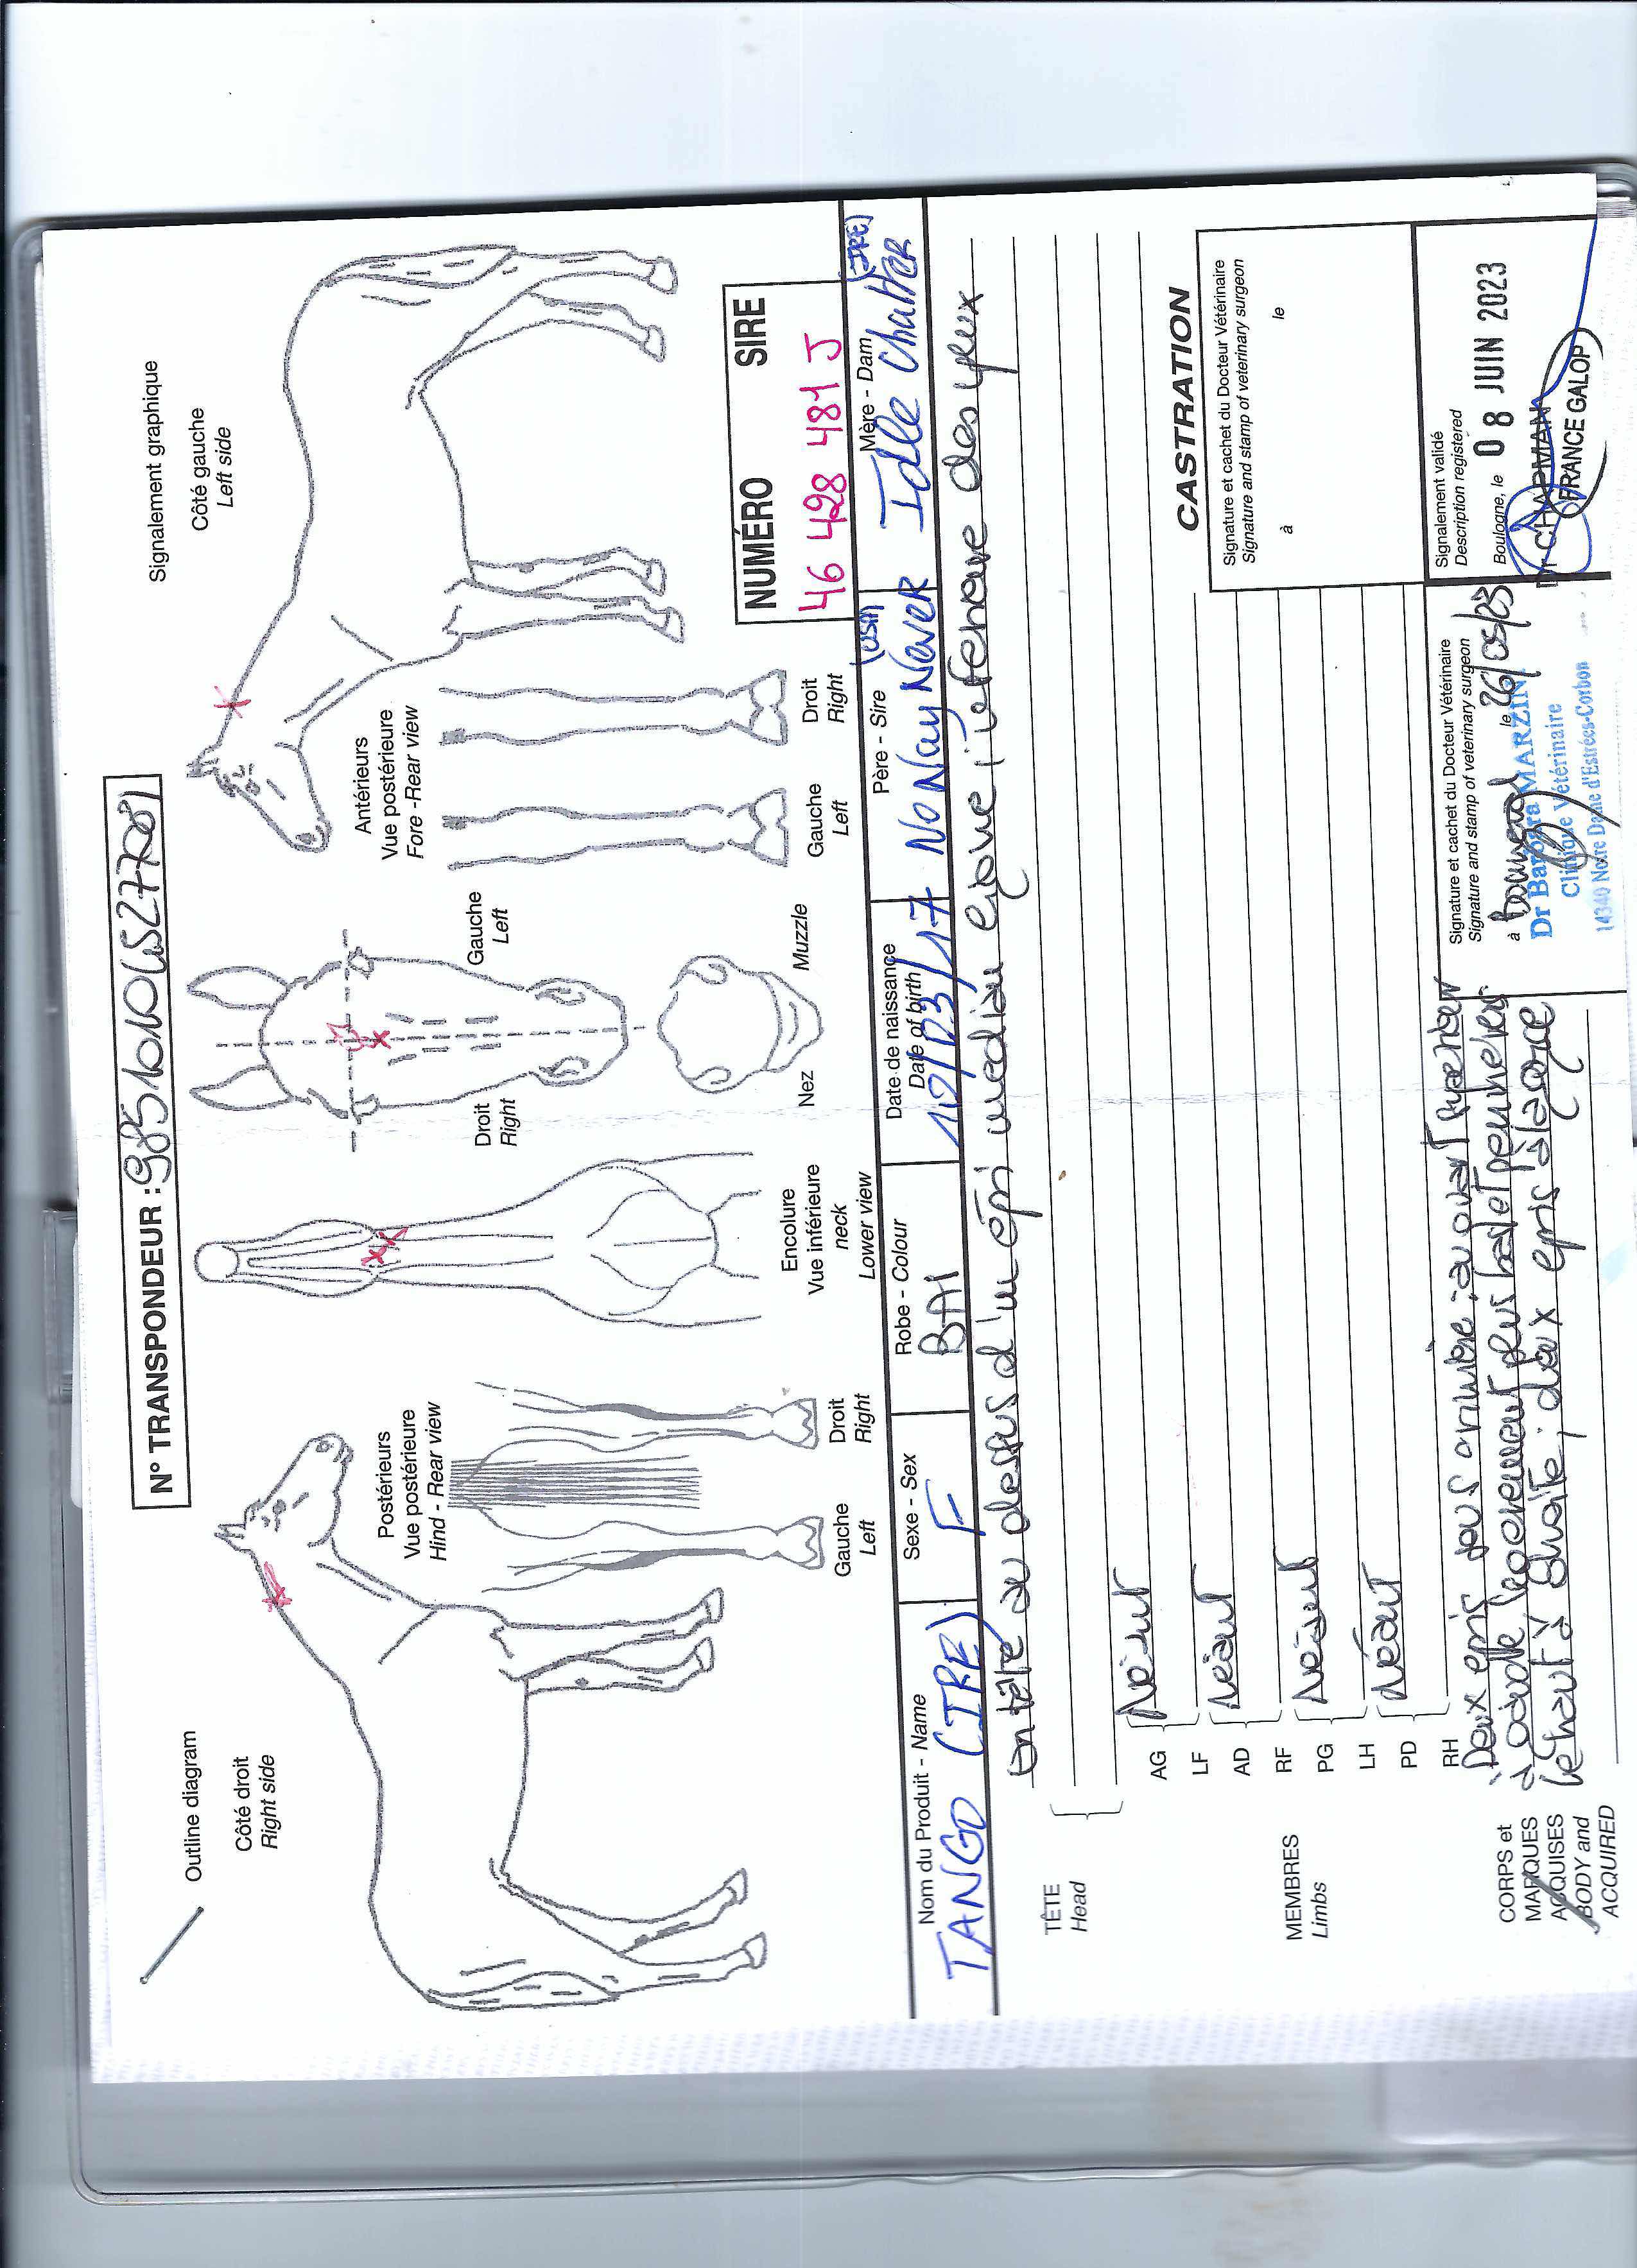 N° TRANSPONDEUR :
Outline diagram
Signalement graphique
Côté droit
Right side
Côté gauche
Left side
Postérieurs
Vue postérieure
Hind - Rear view
Gauche
Left
Droit
Right
Encolure
Vue inférieure
neck
Lower view
Droit
Right
Gauche
Left
Nez
Muzzle
Antérieurs
Vue postérieure
Fore -Rear view
Gauche
Left
Droit
Right
NUMÉRO SIRE
46 428 481 J
Nom du Produit - Name
TANGO (IRE)
Sexe - Sex
F
Robe - Colour
BAI
Date de naissance
Date of birth
12/03/17
Père - Sire
No Nay Never (USA)
Mère - Dam
Idle Chatter (IRE)
TÊTE
Head
en tête au dessus d'un épi médian ligne inférieure des yeux
MEMBRES
Limbs
AG
LF
Néant
AD
RF
Néant
PG
LH
Néant
PD
RH
Néant
CORPS et
MARQUES
ACQUISES
BODY and
ACQUIRED
Deux épis sous crinière : un avant supérieur
à droite légèrement plus bas et penché vers
le haut à droite ; deux épis à la gorge
CASTRATION
Signature et cachet du Docteur Vétérinaire
Signature and stamp of veterinary surgeon
à le
Signature et cachet du Docteur Vétérinaire
Signature and stamp of veterinary surgeon
à le 26/05/23
Dr Barbara MARZIN
Clinique Vétérinaire
14340 Notre Dame d'Estrées-Corbon
Signalement validé
Description registered
Boulogne, le 08 JUIN 2023
Dr CHAPMAN
FRANCE GALOP